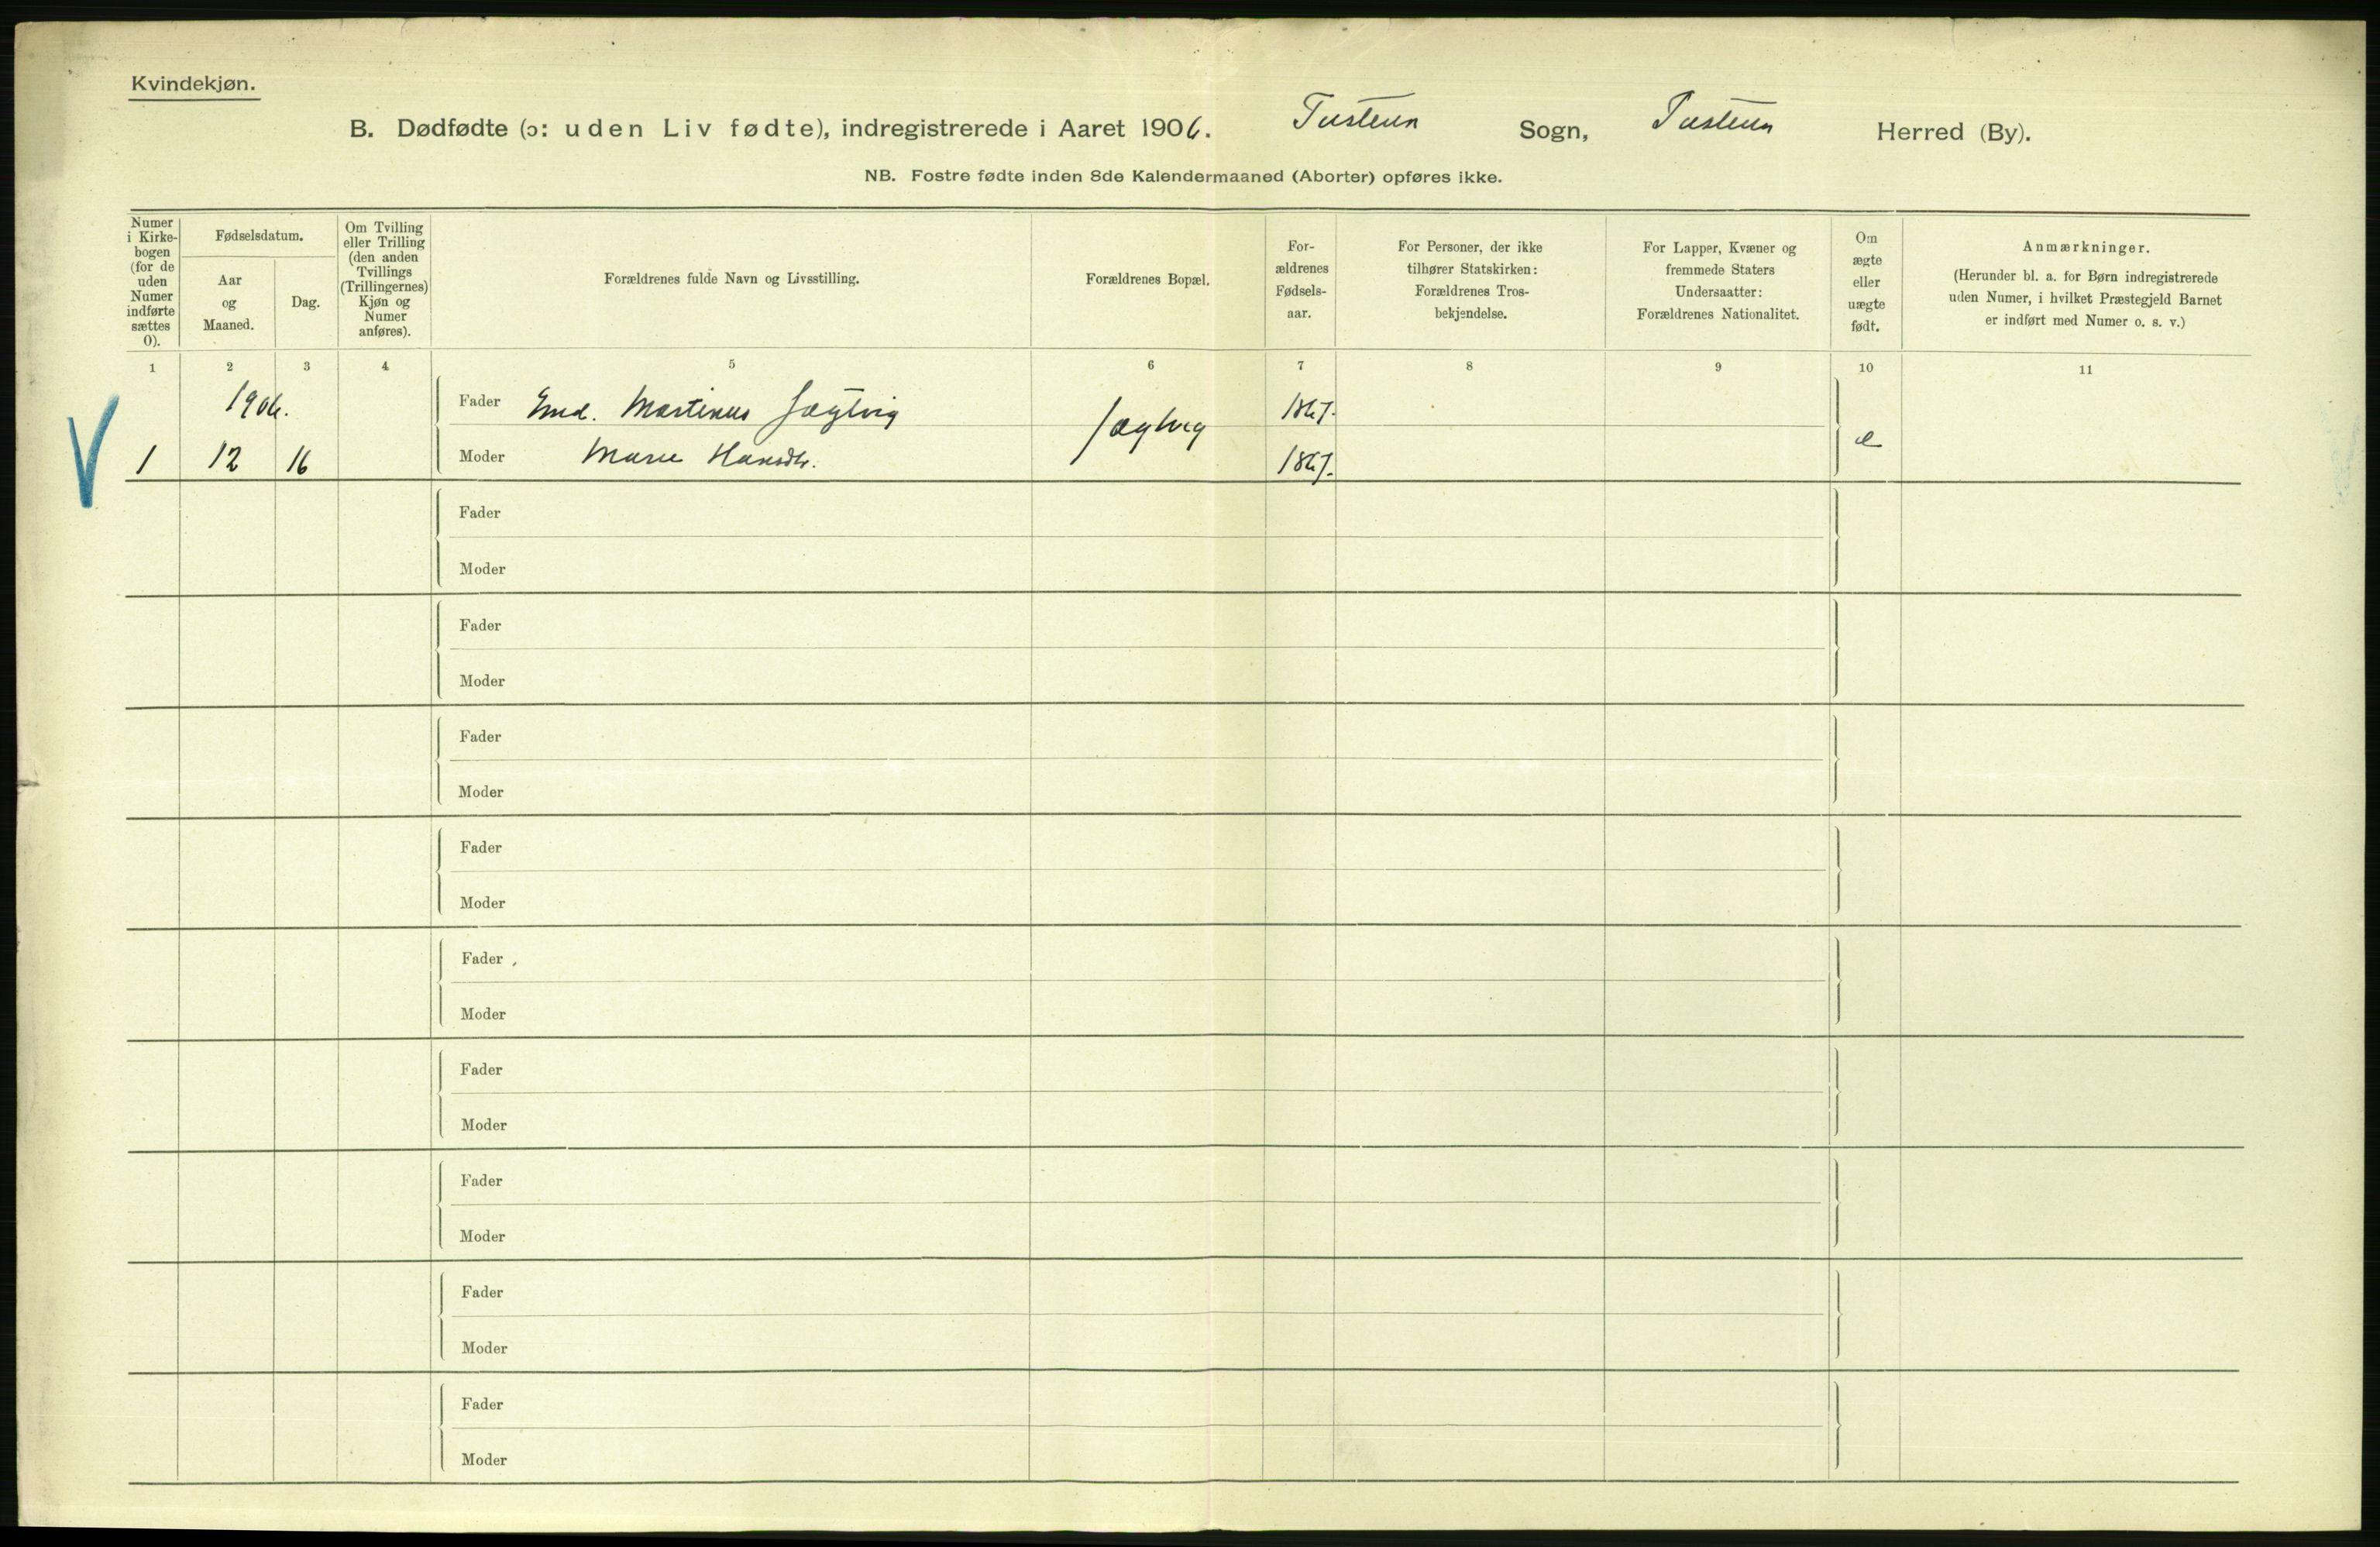 Kvindekjøn.
B. Dødfødte (ɔ: uden Liv fødte), indregistrerede i Aaret 1906. Tusteren Sogn, Tusteren Herred (By).
NB. Fostre fødte inden 8de Kalendermaaned (Aborter) opføres ikke.
Numer i Kirke-bogen (for de uden Numer indførte sættes 0).
Fødselsdatum.
Aar og Maaned.
Dag.
Om Tvilling eller Trilling (den anden Tvillings (Trillingernes) Kjøn og Numer anføres).
Forældrenes fulde Navn og Livsstilling.
Forældrenes Bopæl.
For-ældrenes Fødsels-aar.
For Personer, der ikke tilhører Statskirken: Forældrenes Tros-bekjendelse.
For Lapper, Kvæner og fremmede Staters Undersaatter: Forældrenes Nationalitet.
Om ægte eller uægte født.
Anmærkninger.
(Herunder bl. a. for Børn indregistrerede uden Numer, i hvilket Præstegjeld Barnet er indført med Numer o. s. v.)
1 2 3 4 5 6 7 8 9 10 11
1906. Fader Gmd. Martinus Jægtvig Jægtvig 1867. æ
V 1 12 16 Moder Marie Hansdtr. 1867.
Fader
Moder
Fader
Moder
Fader
Moder
Fader
Moder
Fader
Moder
Fader
Moder
Fader
Moder
Fader
Moder
Fader
Moder